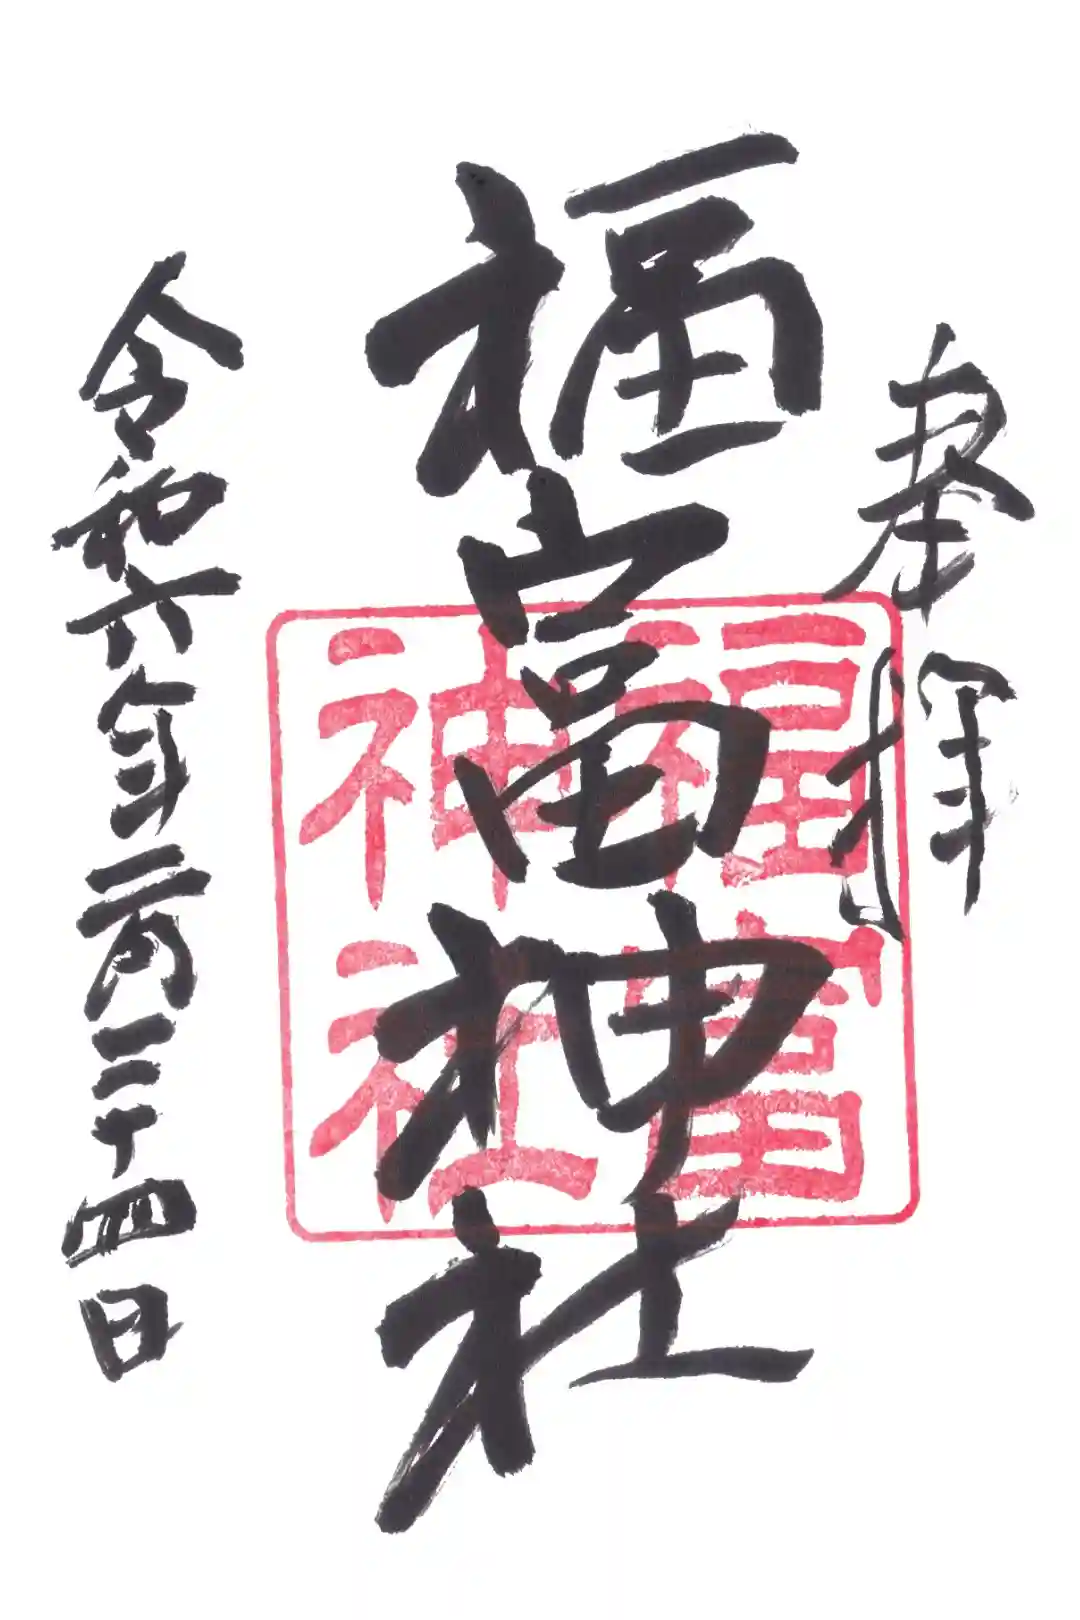 奉拝
福富神社
福富
神社
令和六年二月二十四日